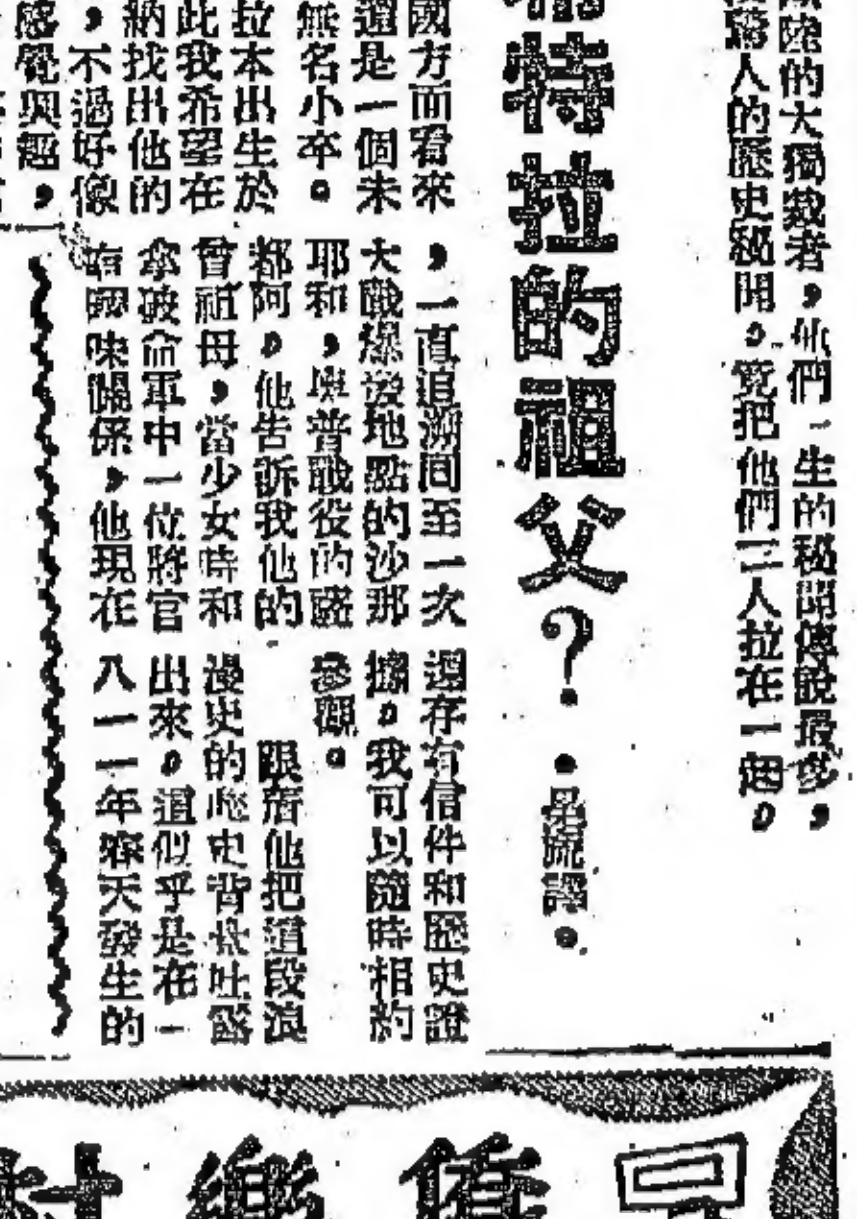 陸的大獨裁者，他們一生的秘聞傳說最多，
驚人的歷史秘聞。竟把他們三人拉在一起。
特拉的祖父？
譯
國方面看來
還是一個未
無名小卒。
拉本出生於
此我希望在
納找出他的
，不過好像
感覺興趣，
，一直追溯回至一次
大戰爆發地點的沙那
耶和，奧普戰役的薩
都阿。他告訴我他的
曾祖母，當少女時和
拿破侖軍中一位將官
有曖昧關係，他現在
還存有信件和歷史證
據。我可以隨時相約
參觀。
跟着他把這段浪
漫史的歷史背景吐露
出來。這似乎是在一
八一一年春天發生的
樂